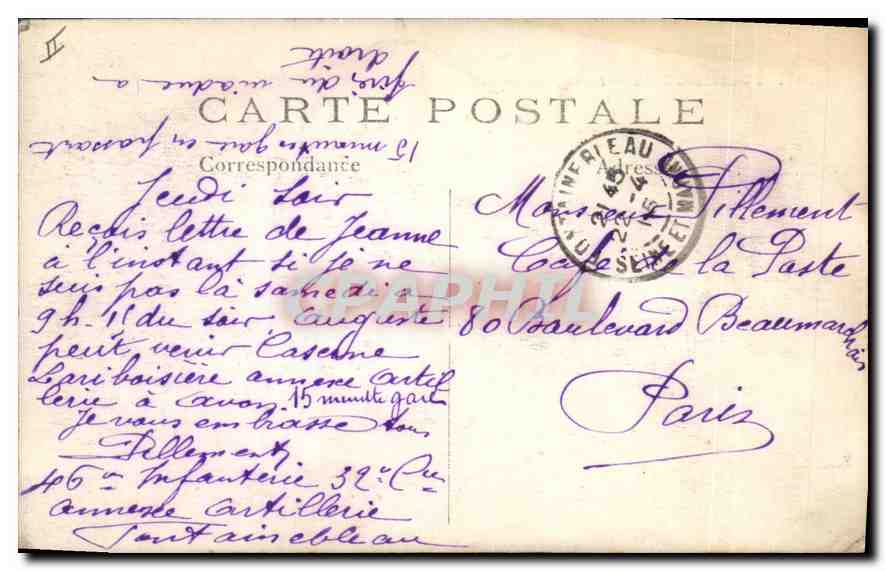 II
15 minutes gare en passant
près du viaduc a
droite
CARTE POSTALE
Correspondance
Adresse
FONTAINEBLEAU
21 45
22 - 4
15
SEINE ET MARNE
Jeudi soir
Reçois lettre de Jeanne
à l'instant si je ne
suis pas là samedi a
9 h. 1/2 du soir, Auguste
peut venir Caserne
Lariboisière annexe artil
lerie à avon 15 minutes gare
Je vous embrasse tous
Pillement
46e Infanterie 32e Cie
annexe artillerie
Fontainebleau
Monsieur Pillement
Café de la Poste
80 Boulevard Beaumarchais
Paris
CPAPHIL